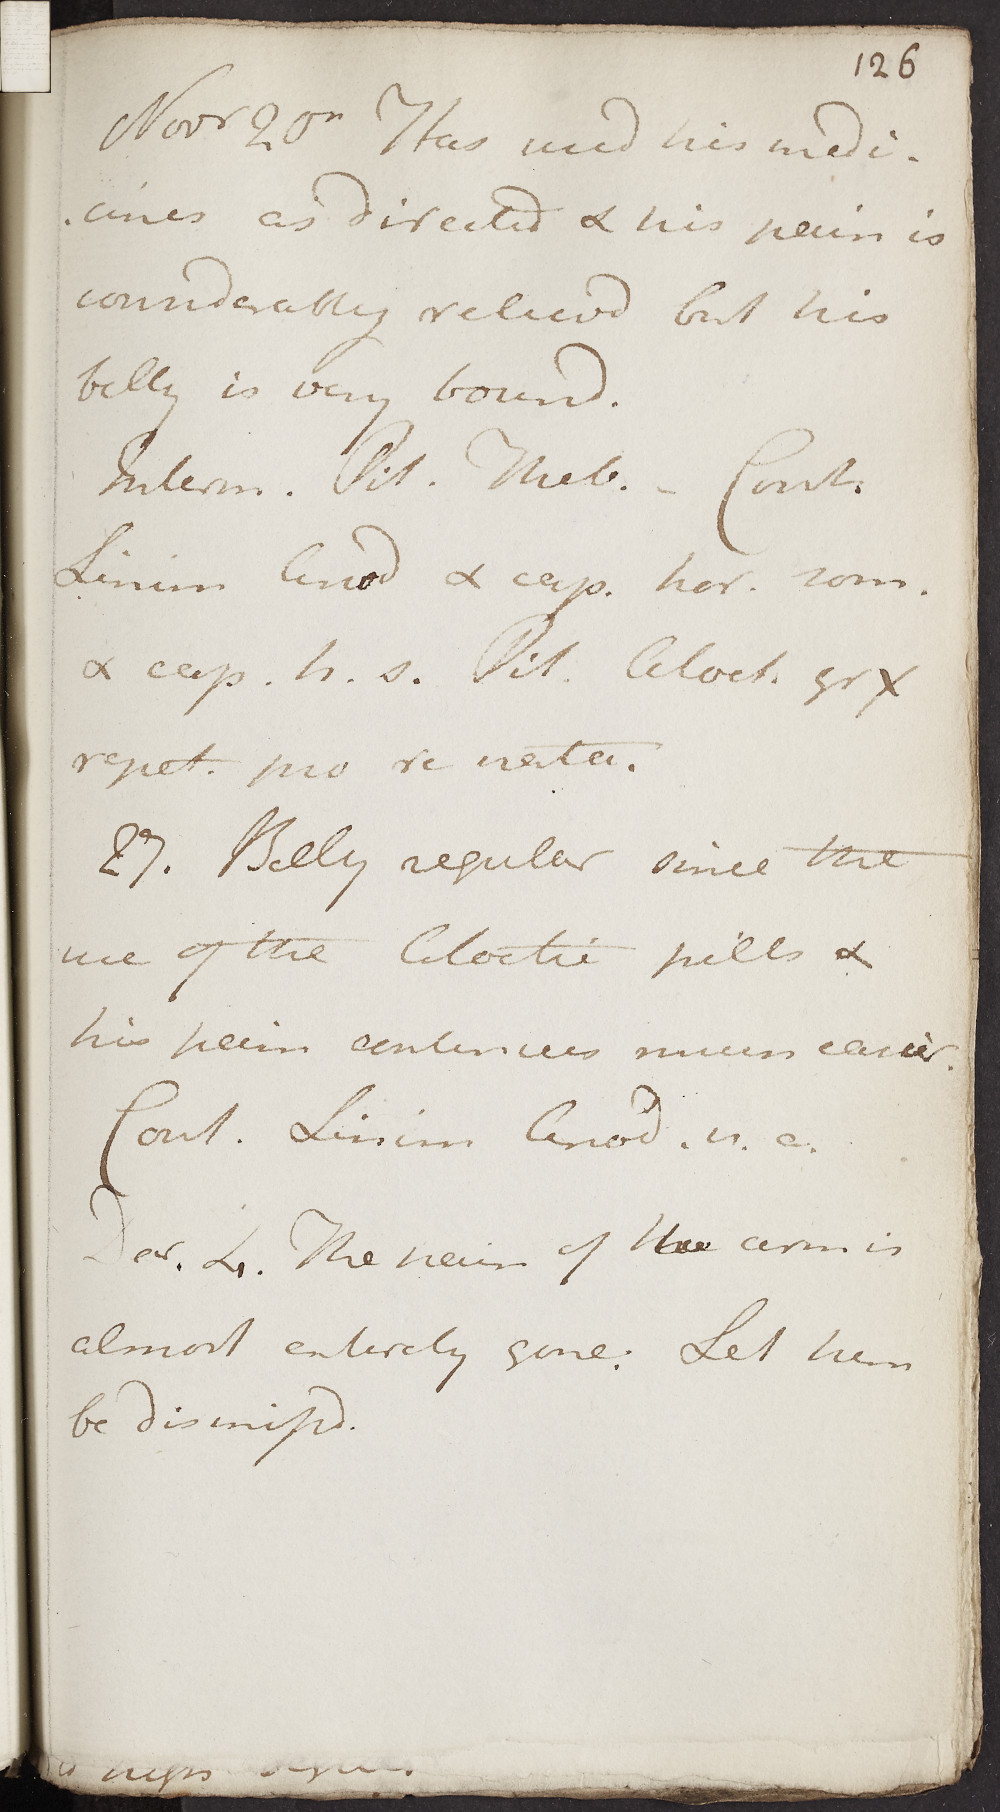 126
Novr 20th Has used his medi-
-cines as directed & his pain is
considerably relievd but his
belly is very bound.
Interm. Pil. Theb. - Cont.
Linim Anod & cap. hor. som.
& cap. h. s. Pil. Aloet. gr x
repet. pro re nata.
27. Belly regular since the
use of the Aloetic pills &
his pain continues much easier.
Cont. Linim Anod. u. a.
Der. 4. The pain of the arm is
almost entirely gone. Let him
be dismissd.